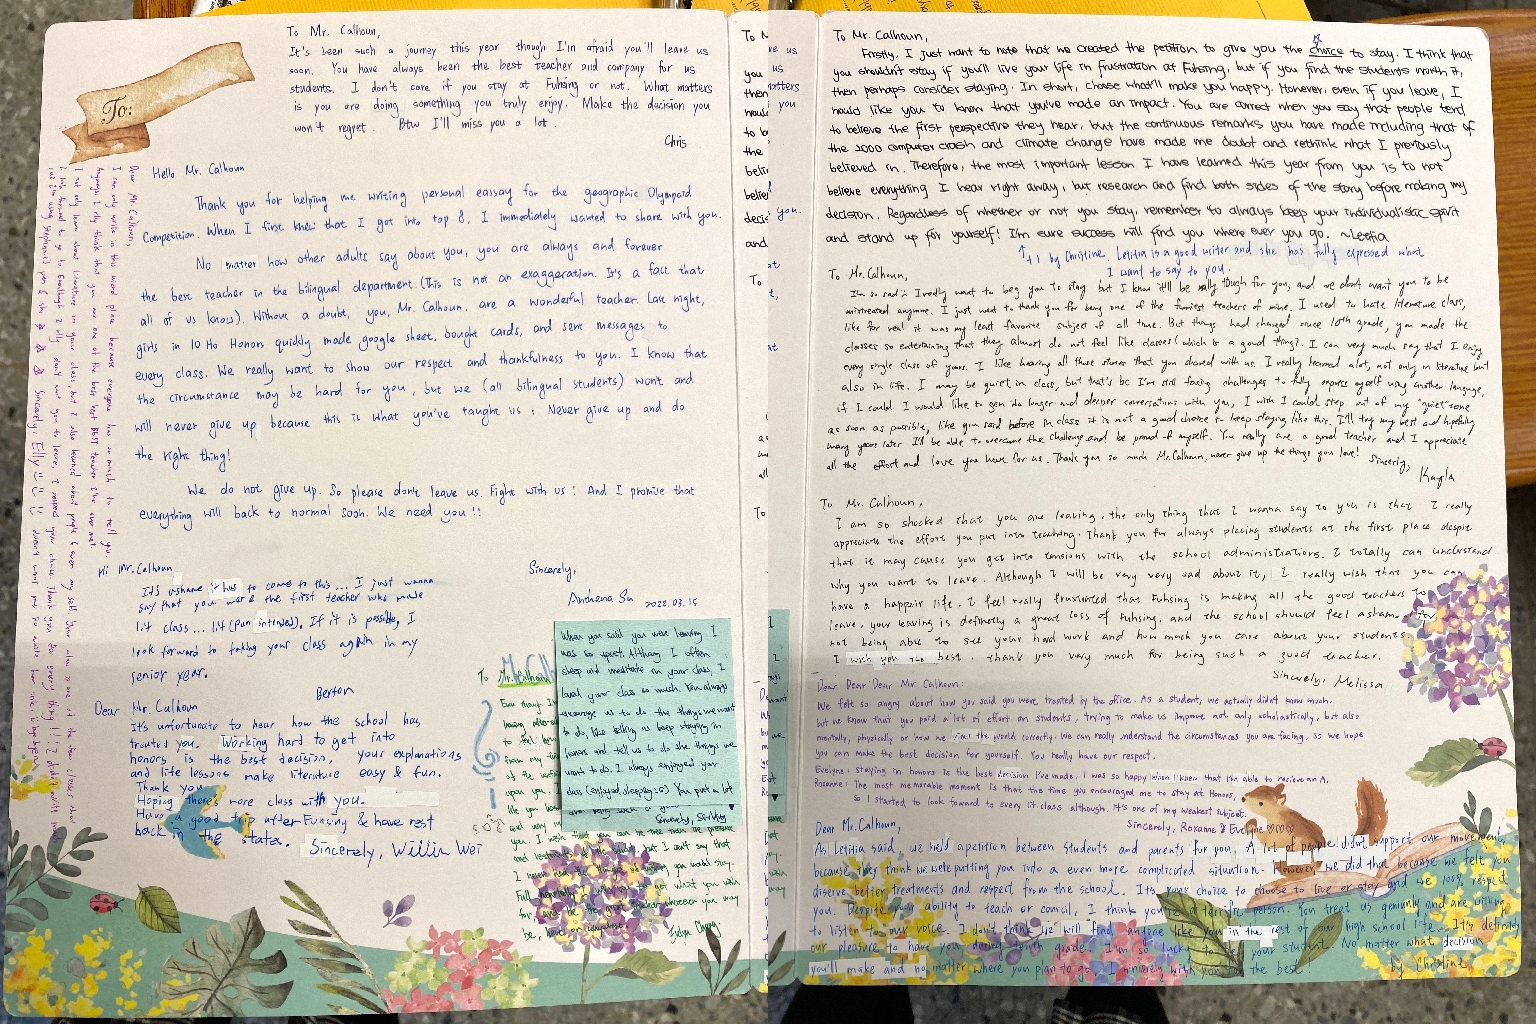 To:
To Mr. Calhoun,
It's been such a journey this year though I'm afraid you'll leave us
soon. You have always been the best teacher and company for us
students. I don't care if you stay at Fuhsing or not. What matters
is you are doing something you truly enjoy. Make the decision you
won't regret. Btw I'll miss you a lot.
Chris
Hello Mr. Calhoun
Thank you for helping me writing personal eassay for the geographic Olympaid
Competition. When I first knew that I got into top 8, I immediately wanted to share with you.
No matter how other adults say about you, you are always and forever
the best teacher in the bilingual department. (This is not an exaggeration. It's a fact that
all of us know). Without a doubt, you, Mr. Calhoun, are a wonderful teacher. Late night,
girls in 10 Ho Honors quickly made google sheet, bought cards, and sent messages to
every class. We really want to show our respect and thankfulness to you. I know that
the circumstance may be hard for you, but we (all bilingual students) won't and
will never give up because this is what you've taught us: Never give up and do
the right thing!
We do not give up. So please don't leave us. Fight with us! And I promise that
everything will back to normal soon. We need you!!
Sincerely,
Anthena Su 2022.03.15
Dear Mr. Calhoun,
I can only write in this weird place because everyone has so much to tell you.
Anyways, I rlly think that you are one of the best best BEST teacher I've ever met.
Sincerely, Elly
Hi Mr. Calhoun
It's ashame it has to come to this... I just wanna
say that you were the first teacher who made
lit class... lit (Pun intended). If it is possible, I
look forward to taking your class again in my
senior year.
Berton
Dear Mr. Calhoun
It's unfortunate to hear how the school has
treated you. Working hard to get into
honors is the best decision, your explanations
and life lessons make literature easy & fun.
Thank you
Hoping there's more class with you.
Have a good trip after Fuhsing & have rest
back in the states.
Sincerely, Willin Wei
To Mr. Calhoun
When you said you were leaving I
was so upset. Althoug I often
sleep and meditate in your class, I
loved your class so much. You always
encourage us to do the things we want
to do, like telling us keep staying in
honors and tell us to do the things we
want to do. I always enjoyed your
class (enjoyed sleeping too) You put a lot
Sincerely,
To Mr. Calhoun,
Firstly, I just want to note that we created the petition to give you the choice to stay. I think that
you shouldn't stay if you'll live your life in frustration at Fuhsing, but if you find the students worth it,
then perhaps consider staying. In short, choose what'll make you happy. However, even if you leave, I
would like you to know that you've made an impact. You are correct when you say that people tend
to believe the first perspective they hear, but the continuous remarks you have made including that of
the 2000 computer crash and climate change have made me doubt and rethink what I previously
believed in. Therefore, the most important lesson I have learned this year from you is to not
believe everything I hear right away, but research and find both sides of the story before making my
decision. Regardless of whether or not you stay, remember to always keep your individualistic spirit
and stand up for yourself! I'm sure success will find you where ever you go. ~Letitia
↑ +1 by Christine. Letitia is a good writer and she has fully expressed what
I want to say to you.
To Mr. Calhoun,
I'm so sad:( I really want to beg you to stay but I know it'll be really tough for you, and we don't want you to be
mistreated anymore. I just want to thank you for being one of the funniest teachers of mine. I used to hate literature class,
like for real it was my least favorite subject of all time. But things had changed once 10th grade, you made the
classes so entertaining that they almost do not feel like classes (which is a good thing). I can very much say that I enjoy
every single class of yours. I like hearing all those stories that you shared with us. I really learned alot, not only in literature but
also in life. I may be quiet in class, but that's bc I'm still facing challenges to fully express myself using another language,
if I could I would like to gen da longer and deeper conversations with you, I wish I could step out of my "quiet" zone
as soon as possible, like you said before in class it is not a good choice to keep staying like this. I'll try my best and hopefully
many years later I'll be able to overcome the challenge and be proud of myself. You really are a good teacher and I appreciate
all the effort and love you have for us. Thank you so much Mr. Calhoun, never give up the things you love!
Sincerly,
Kayla
To Mr. Calhoun,
I am so shocked that you are leaving, the only thing that I wanna say to you is that I really
appreciate the effort you put into teaching. Thank you for always placing students at the first place despite
that it may cause you get into tensions with the school administrations. I totally can understand
why you want to leave. Although I will be very very sad about it, I really wish that you can
have a happier life. I feel really frustrated that Fuhsing is making all the good teachers to
leave, your leaving is definetly a great loss of Fuhsing, and the school should feel asham... for
not being able to see your hard work and how much you care about your students.
I wish you the best. Thank you very much for being such a good teacher.
Sincerely, Melissa
Dear Dear Dear Mr. Calhoun:
We felt so angry about how you said you were treated by the office. As a student, we actually didn't know much.
but we know that you paid a lot of effort on students, trying to make us improve not only scholastically, but also
mentally, physically or how we view the world correctly. We can really understand the circumstances you are facing, so we hope
you can make the best decision for yourself. You really have our respect.
Evelyne: staying in honors is the best decision I've made. I was so happy when I knew that I'm able to recieve an A.
Roxanne: The most memorable moment is that the time you encouraged me to stay at Honors,
so I started to look foward to every lit class although, it's one of my weakest subject.
Sincerely, Roxanne & Evelyne
Dear Mr. Calhoun,
As Letitia said, we held a petition between students and parents for you. A lot of people didn't support our movement,
because they think we were putting you into a even more complicated situation. However, we did that because we felt you
diserve better treatments and respect from the school. It's your choice to choose to live or stay and we 100% respect
you. Despite your ability to teach or council, I think you're a terrific person. You treat us genuinly and are willing
to listen to our voice. I don't think we will find anyone like you in the rest of our high school life. It's definitely
our pleasure to have you during tenth grade. I'm so lucky to be your student. No matter what decision
you'll make and no matter where you plan to go, I sincerely wish you all the best!
by Christine